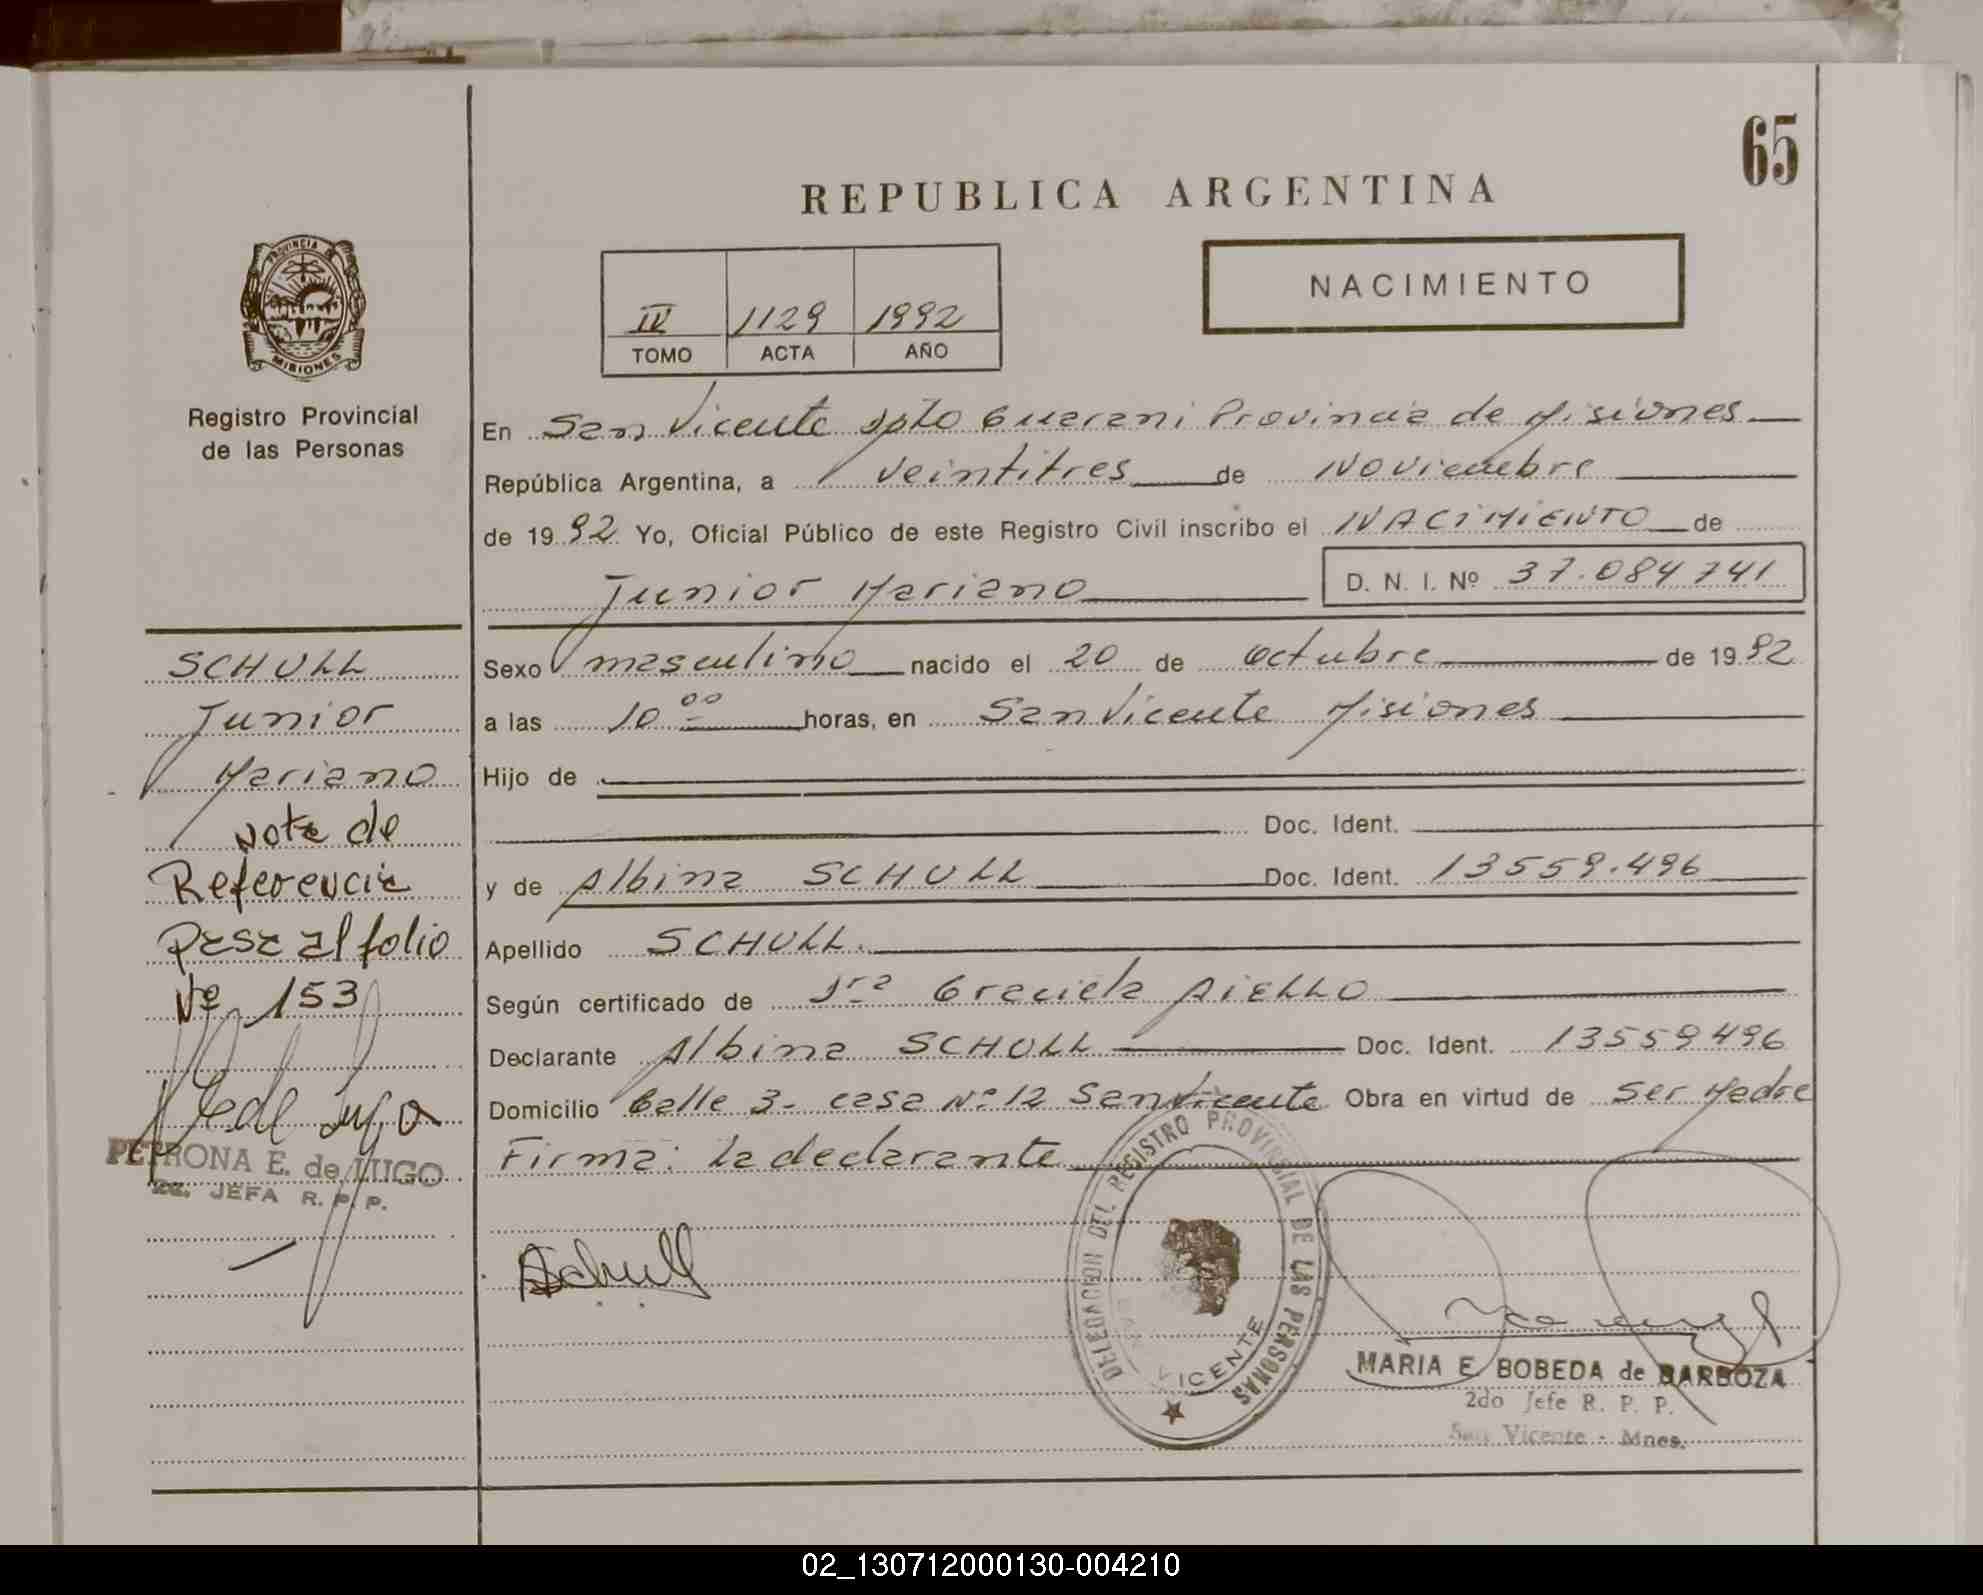 65
REPUBLICA ARGENTINA
NACIMIENTO
IV 1129 1992
TOMO ACTA AÑO
PROVINCIA
MISIONES
Registro Provincial
de las Personas
En San Vicente Dpto Guarani Provincia de Misiones
República Argentina, a veintitres de Noviembre
de 1992 Yo, Oficial Público de este Registro Civil inscribo el NACIMIENTO de
Junior Mariano D. N. I. Nº 37.084741
Sexo masculino nacido el 20 de octubre de 1992
a las 10 00 horas, en San Vicente Misiones
Hijo de
Doc. Ident.
y de Albina SCHULL Doc. Ident. 13559.496
Apellido SCHULL.
Según certificado de Dra Graciela AIELLO
Declarante Albina SCHULL Doc. Ident. 13559496
Domicilio Calle 3- casa Nº 12 San Vicente Obra en virtud de Ser Madre
Firma: La declarante
SCHULL
Junior
Mariano
Nota de
Referencia
Pasa al folio
Nº 153
PETRONA E. de LUGO
JEFA R. P. P.
ASchull
DELEGACION DEL REGISTRO PROVINCIAL DE LAS PERSONAS
SAN VICENTE
MARIA E. BOBEDA de BARBOZA
2do Jefe R. P. P.
San Vicente - Mnes.
02_130712000130-004210